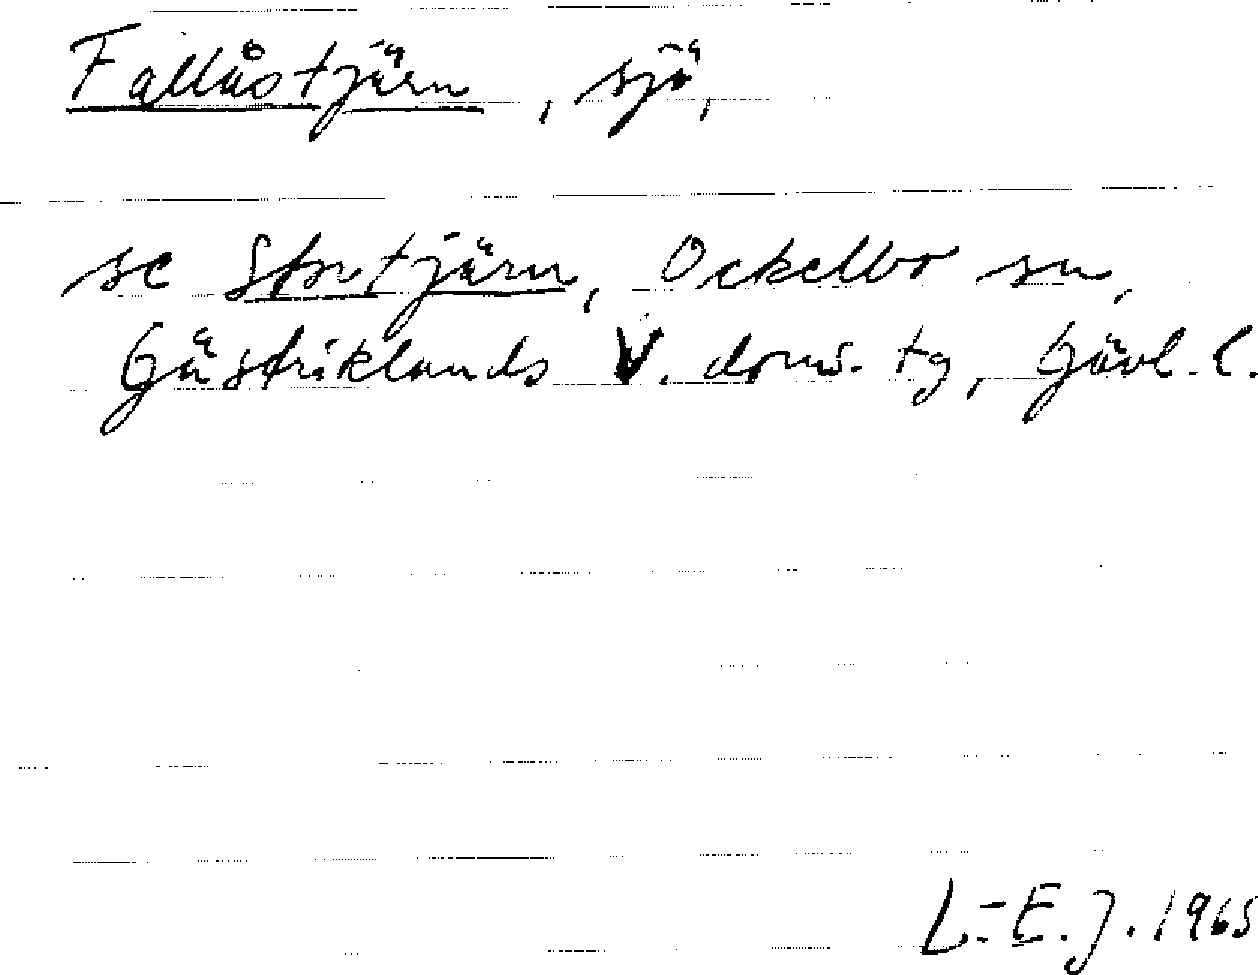 Fallåstjärn, sjö,
se Stortjärn, Ockelbo sn,
Gästriklands V. doms. tg, Gävl. l.
L.-E. J. 1965